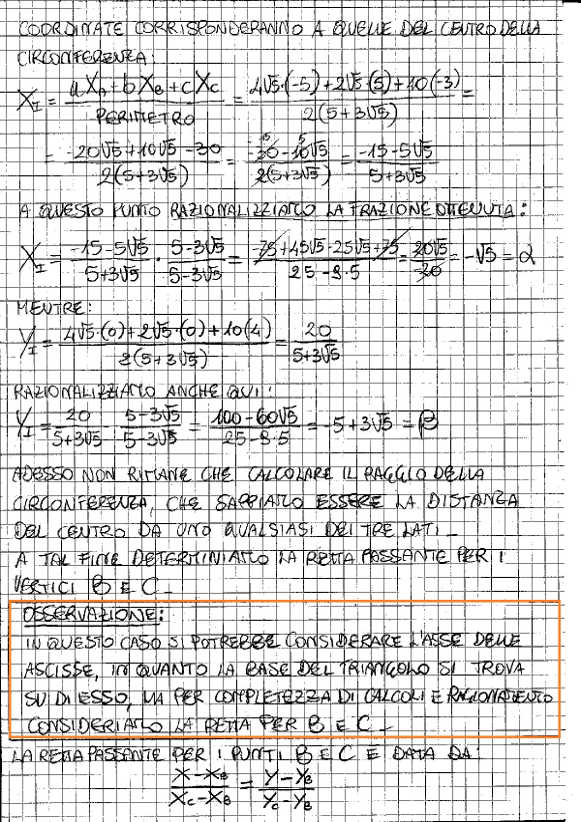 COORDINATE CORRISPONDERANNO A QUELLE DEL CENTRO DELLA
CIRCONFERENZA:
X_I = (aX_A + bX_B + cX_C)/PERIMETRO = (4√5·(-5) + 2√5·(5) + 10(-3))/(2(5+3√5)) =
= (-20√5 + 10√5 - 30)/(2(5+3√5)) = (-30 - 10√5)/(2(5+3√5)) = (-15 - 5√5)/(5+3√5)
A QUESTO PUNTO RAZIONALIZZIAMO LA FRAZIONE OTTENUTA:
X_I = (-15 - 5√5)/(5+3√5) · (5-3√5)/(5-3√5) = (-75 + 45√5 - 25√5 + 75)/(25 - 9·5) = 20√5/-20 = -√5 = α
MENTRE:
Y_I = (4√5·(0) + 2√5·(0) + 10(4))/(2(5+3√5)) = 20/(5+3√5)
RAZIONALIZZIAMO ANCHE QUI:
Y_I = 20/(5+3√5) · (5-3√5)/(5-3√5) = (100 - 60√5)/(25 - 9·5) = -5 + 3√5 = β
ADESSO NON RIMANE CHE CALCOLARE IL RAGGIO DELLA
CIRCONFERENZA, CHE SAPPIAMO ESSERE LA DISTANZA
DEL CENTRO DA UNO QUALSIASI DEI TRE LATI.
A TAL FINE DETERMINIAMO LA RETTA PASSANTE PER I
VERTICI B E C.
OSSERVAZIONE:
IN QUESTO CASO SI POTREBBE CONSIDERARE L'ASSE DELLE
ASCISSE, IN QUANTO LA BASE DEL TRIANGOLO SI TROVA
SU DI ESSO, MA PER COMPLETEZZA DI CALCOLI E RAGIONAMENTO
CONSIDERIAMO LA RETTA PER B E C.
LA RETTA PASSANTE PER I PUNTI B E C È DATA DA:
(X - X_B)/(X_C - X_B) = (Y - Y_B)/(Y_C - Y_B)